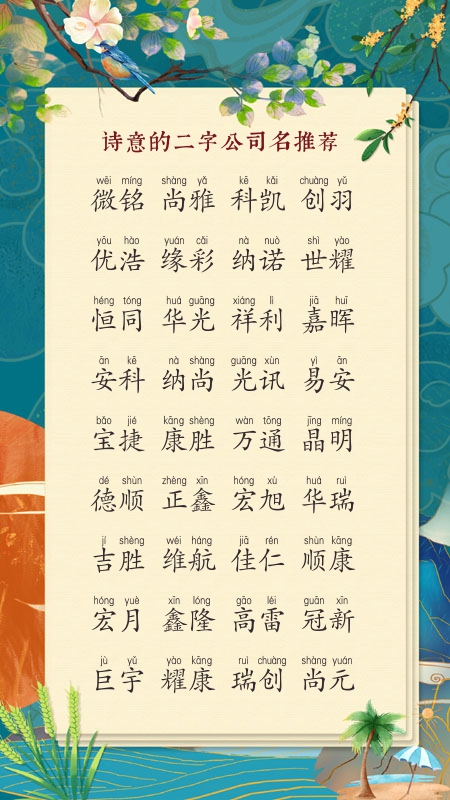 诗意的二字公司名推荐
wēi míng shàng yǎ kē kǎi chuàng yǔ
微铭 尚雅 科凯 创羽
yōu hào yuán cǎi nà nuò shì yào
优浩 缘彩 纳诺 世耀
héng tóng huá guāng xiáng lì jiā huī
恒同 华光 祥利 嘉晖
ān kē nà shàng guāng xùn yì ān
安科 纳尚 光讯 易安
bǎo jié kāng shèng wàn tōng jīng míng
宝捷 康胜 万通 晶明
dé shùn zhèng xīn hóng xù huá ruì
德顺 正鑫 宏旭 华瑞
jí shèng wéi háng jiā rén shùn kāng
吉胜 维航 佳仁 顺康
hóng yuè xīn lóng gāo léi guān xīn
宏月 鑫隆 高雷 冠新
jù yǔ yào kāng ruì chuàng shàng yuán
巨宇 耀康 瑞创 尚元